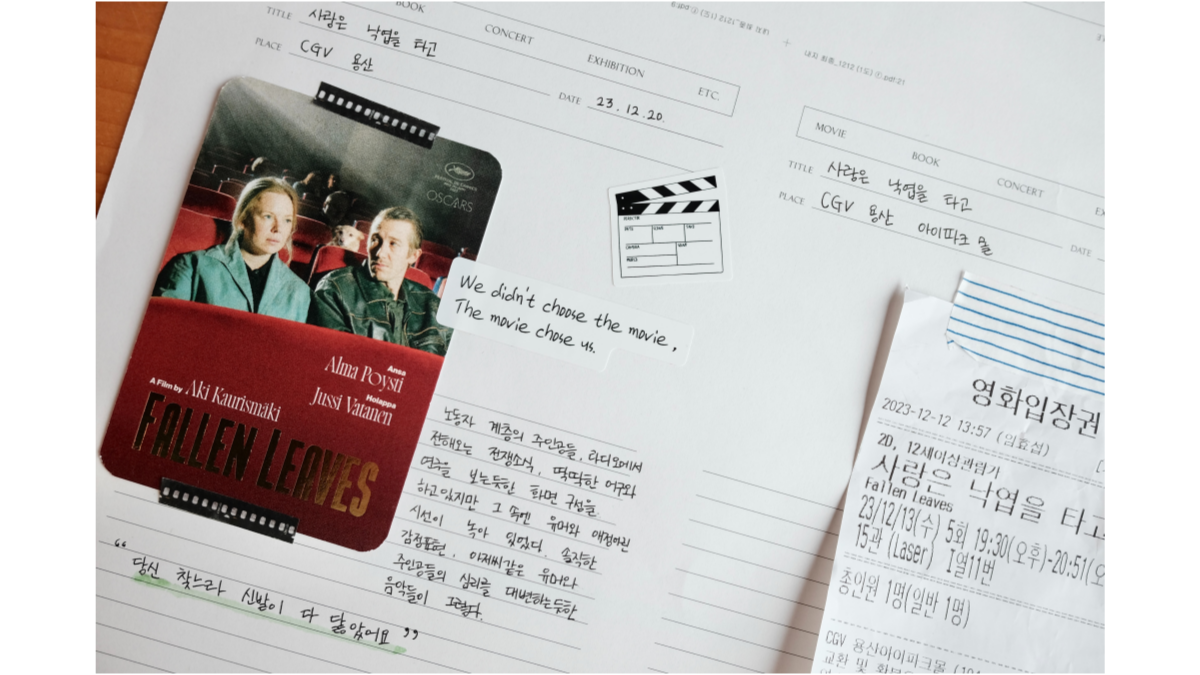 BOOK CONCERT EXHIBITION ETC.
TITLE 사랑은 낙엽을 타고
PLACE CGV 용산
DATE 23.12.20.
FESTIVAL DE CANNES
OSCARS
Ansa
Alma Pöysti
Holappa
Jussi Vatanen
A Film by Aki Kaurismäki
FALLEN LEAVES
We didn't choose the movie,
The movie chose us.
노동자 계층의 주인공들. 라디오에서
전해오는 전쟁소식. 딱딱한 어구와
연극을 보는듯한 화면 구성을
하고있지만 그 속엔 유머와 애정어린
시선이 녹아 있었다. 솔직한
감정표현, 아저씨같은 유머와
주인공들의 심리를 대변하는듯한
음악들이 그렇다.
“당신 찾느라 신발이 다 닳았어요”
내지 최종_1212 (1도) ① .pdf:21
MOVIE BOOK CONCERT
TITLE 사랑은 낙엽을 타고
PLACE CGV 용산 아이파크 몰
DATE
영화입장권
2023-12-12 13:57
2D, 12세이상관람가
사랑은 낙엽을 타고
Fallen Leaves
23/12/13(수) 5회 19:30(오후)-20:51(오
15관 (Laser) I열11번
총인원 1명(일반 1명)
CGV 용산아이파크몰
교환 및